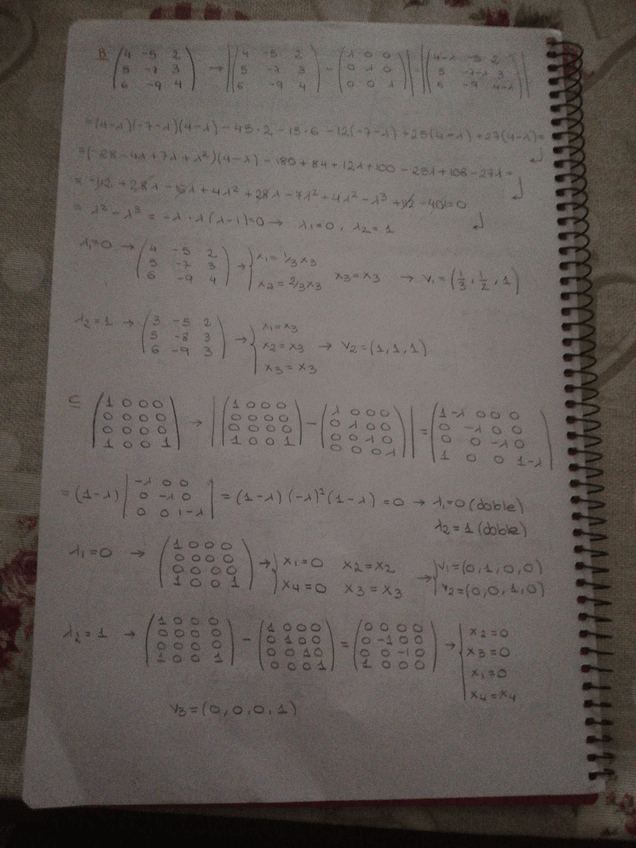 B (4 -5 2 / 5 -7 3 / 6 -9 4) → |(4 -5 2 / 5 -7 3 / 6 -9 4) - (λ 0 0 / 0 λ 0 / 0 0 λ)| = |(4-λ -5 2 / 5 -7-λ 3 / 6 -9 4-λ)|
=(4-λ)(-7-λ)(4-λ) - 45·2 - 15·6 - 12(-7-λ) + 25(4-λ) + 27(4-λ)=
=(-28-4λ+7λ+λ²)(4-λ) - 180 + 84 + 12λ + 100 - 25λ + 108 - 27λ =
= λ² - λ³ = -λ·λ(λ-1)=0 → λ₁=0, λ₂=1
λ₁=0 → (4 -5 2 / 5 -7 3 / 6 -9 4) → { x₁ = 1/3 x₃ / x₂ = 2/3 x₃ x₃ = x₃ → v₁ = (1/3, 1/2, 1)
λ₂=1 → (3 -5 2 / 5 -8 3 / 6 -9 3) → { x₁ = x₃ / x₂ = x₃ / x₃ = x₃ → v₂ = (1,1,1)
C (1 0 0 0 / 0 0 0 0 / 0 0 0 0 / 1 0 0 1) → |(1 0 0 0 / 0 0 0 0 / 0 0 0 0 / 1 0 0 1) - (λ 0 0 0 / 0 λ 0 0 / 0 0 λ 0 / 0 0 0 λ)| = (1-λ 0 0 0 / 0 -λ 0 0 / 0 0 -λ 0 / 1 0 0 1-λ)
= (1-λ) |-λ 0 0 / 0 -λ 0 / 0 0 1-λ| = (1-λ)(-λ)²(1-λ) = 0 → λ₁=0 (doble)
λ₂=1 (doble)
λ₁=0 → (1 0 0 0 / 0 0 0 0 / 0 0 0 0 / 1 0 0 1) → { x₁=0 x₂=x₂ / x₄=0 x₃=x₃ → { v₁=(0,1,0,0) / v₂=(0,0,1,0)
λ₂=1 → (1 0 0 0 / 0 0 0 0 / 0 0 0 0 / 1 0 0 1) - (1 0 0 0 / 0 1 0 0 / 0 0 1 0 / 0 0 0 1) = (0 0 0 0 / 0 -1 0 0 / 0 0 -1 0 / 1 0 0 0) → { x₂=0 / x₃=0 / x₁=0 / x₄=x₄
v₃=(0,0,0,1)